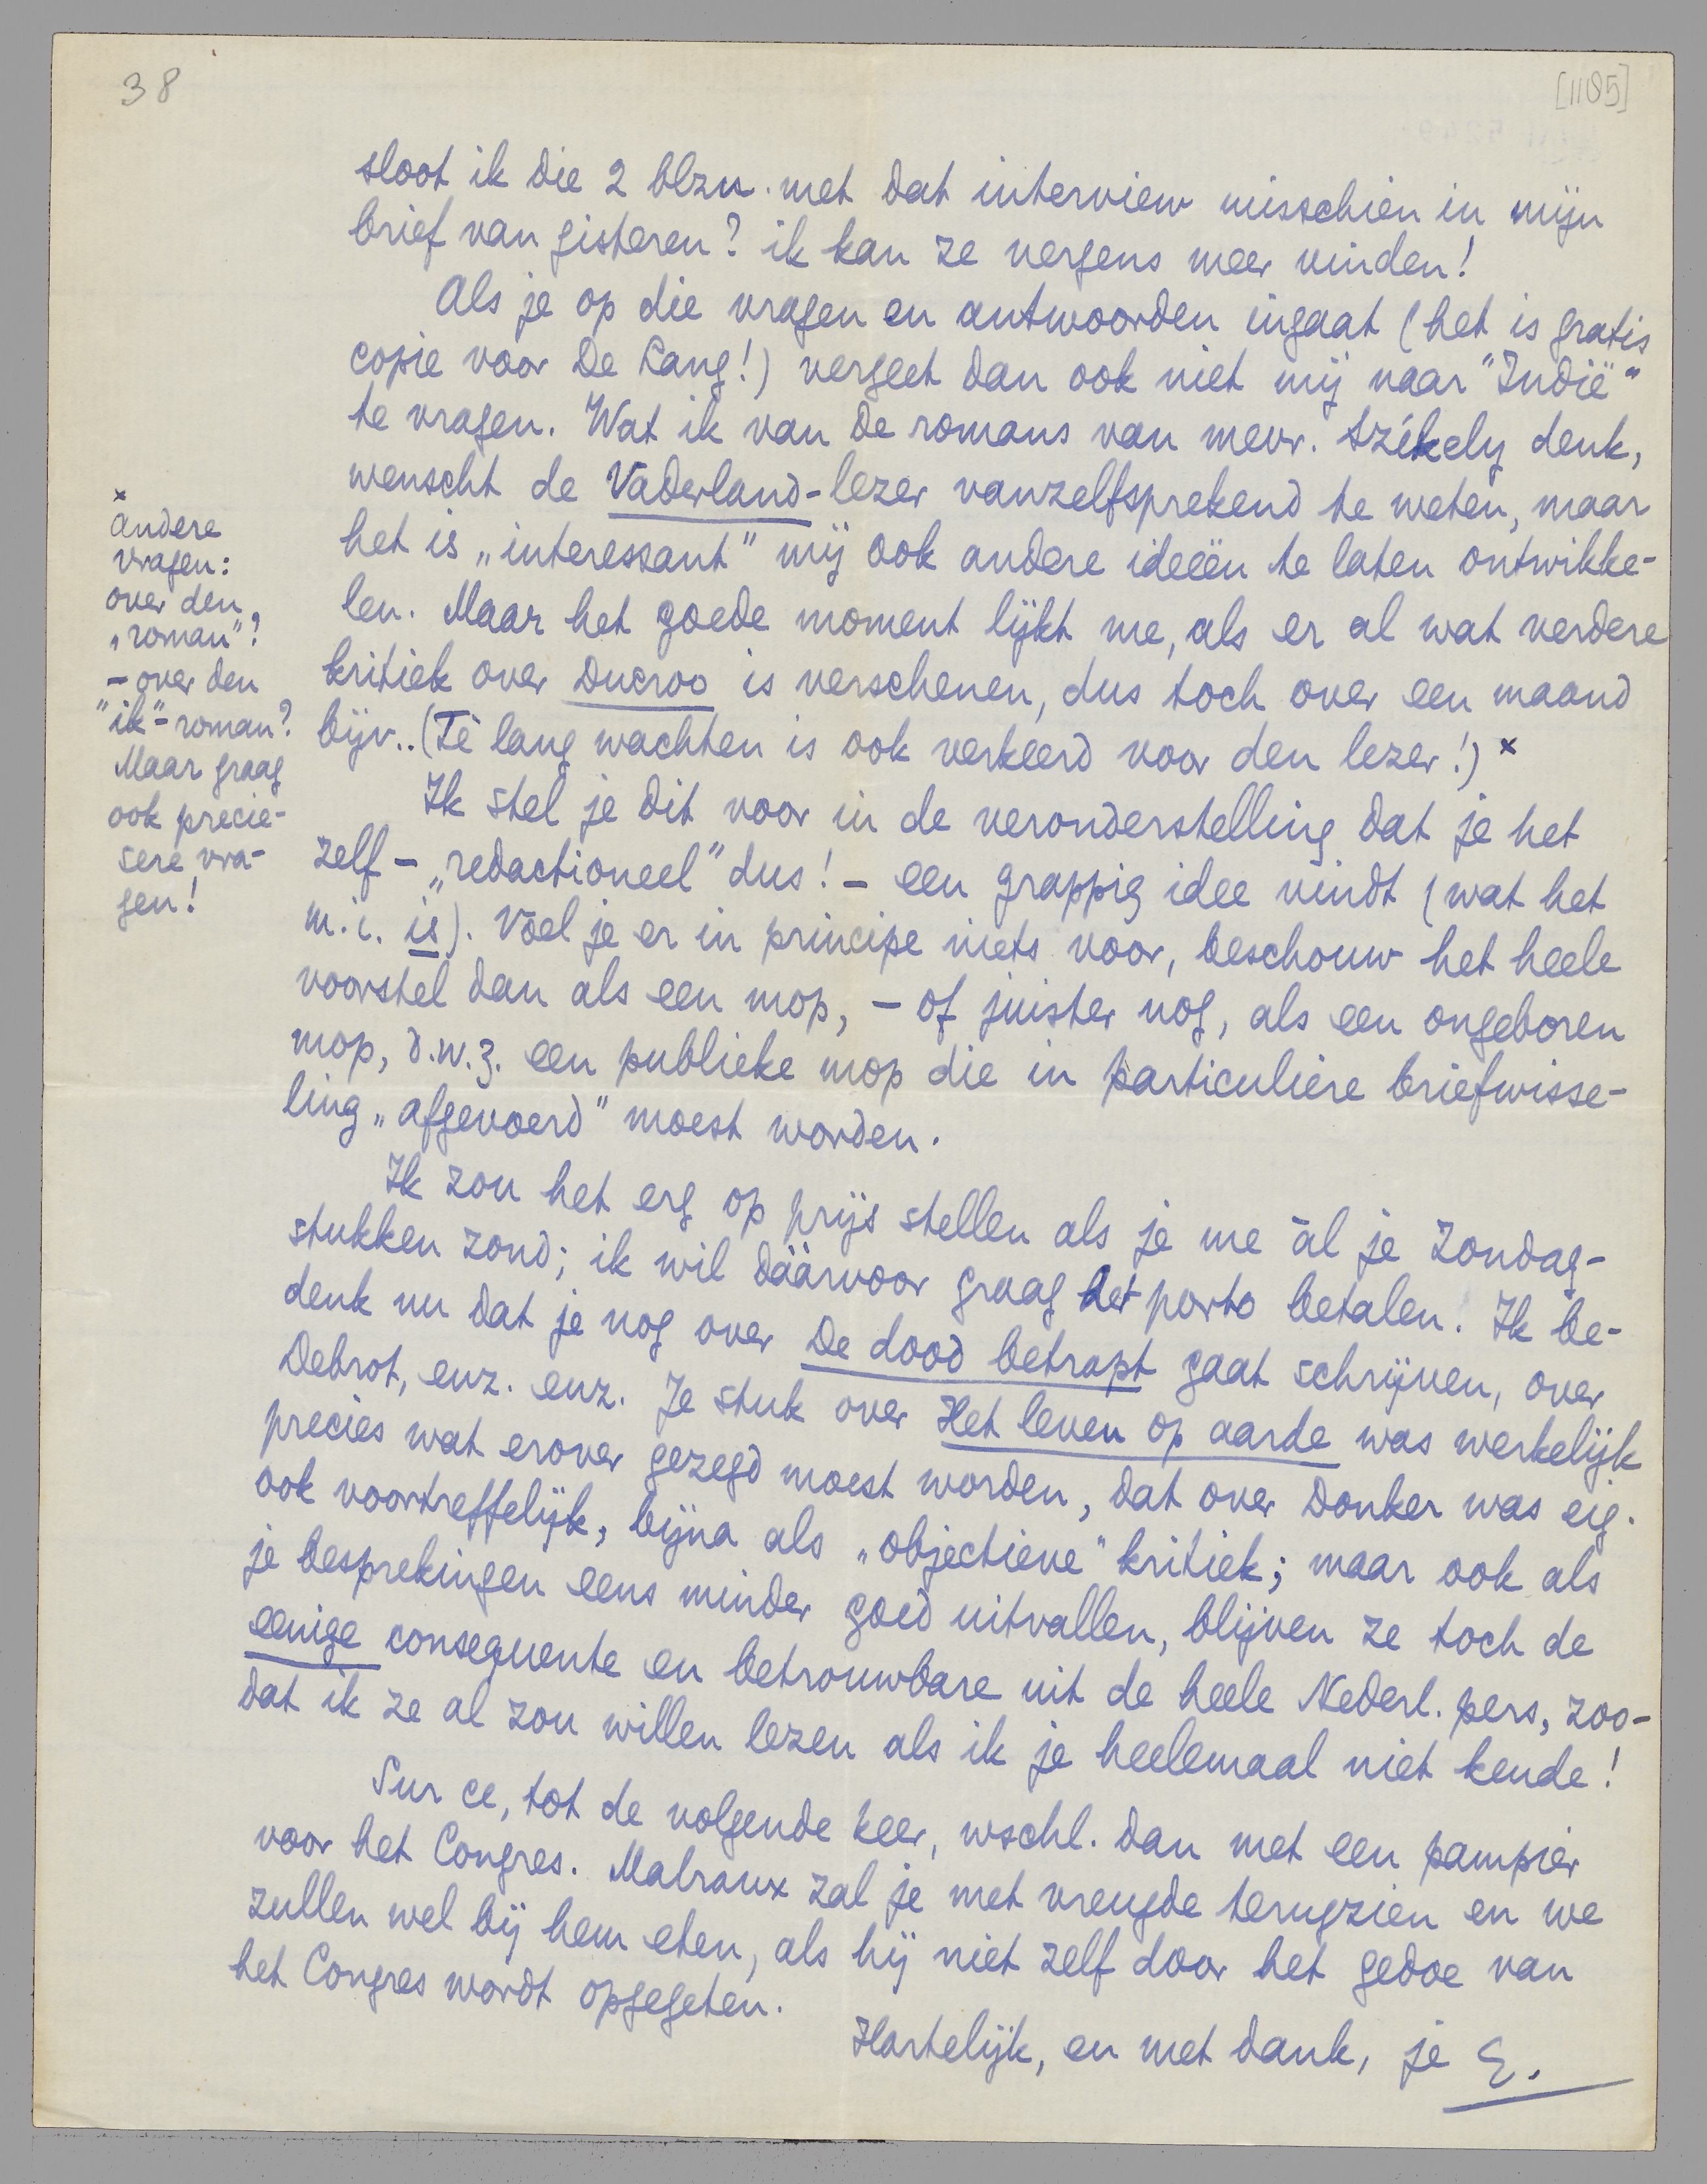 38
[1185]
sloot ik die 2 blzn. met dat interview misschien in mijn
brief van gisteren? ik kan ze nergens meer vinden!
Als je op die vragen en antwoorden ingaat (het is gratis
copie voor De Lang!) vergeet dan ook niet mij naar "Indië"
te vragen. Wat ik van de romans van mevr. Székely denk,
wenscht de Vaderland-lezer vanzelfsprekend te weten, maar
het is „interessant" mij ook andere ideeën te laten ontwikke-
len. Maar het goede moment lijkt me, als er al wat verdere
kritiek over Ducroo is verschenen, dus toch over een maand
bijv.. (Té lang wachten is ook verkeerd voor den lezer!) x
x
andere
vragen:
over den
„roman"?
– over den
"ik"-roman?
Maar graag
ook precie-
sere vra-
gen!
Ik stel je dit voor in de veronderstelling dat je het
zelf – „redactioneel" dus! – een grappig idee vindt (wat het
m.i. is). Voel je er in principe niets voor, beschouw het heele
voorstel dan als een mop, – of juister nog, als een ongeboren
mop, d.w.z. een publieke mop die in particuliere briefwisse-
ling „afgevoerd" moest worden.
Ik zou het erg op prijs stellen als je me ál je Zondag-
stukken zond; ik wil dáárvoor graag het porto betalen. Ik be-
denk nu dat je nog over De dood betrapt gaat schrijven, over
Debrot, enz. enz. Je stuk over Het leven op aarde was werkelijk
precies wat erover gezegd moest worden, dat over Donker was eig.
ook voortreffelijk, bijna als „objectieve" kritiek; maar ook als
je besprekingen eens minder goed uitvallen, blijven ze toch de
eenige consequente en betrouwbare uit de heele Nederl. pers, zoo-
dat ik ze al zou willen lezen als ik je heelemaal niet kende!
Sur ce, tot de volgende keer, wschl. dan met een pampier
voor het Congres. Malraux zal je met vreugde terugzien en we
zullen wel bij hem eten, als hij niet zelf door het gedoe van
het Congres wordt opgegeten.
Hartelijk, en met dank, je E.